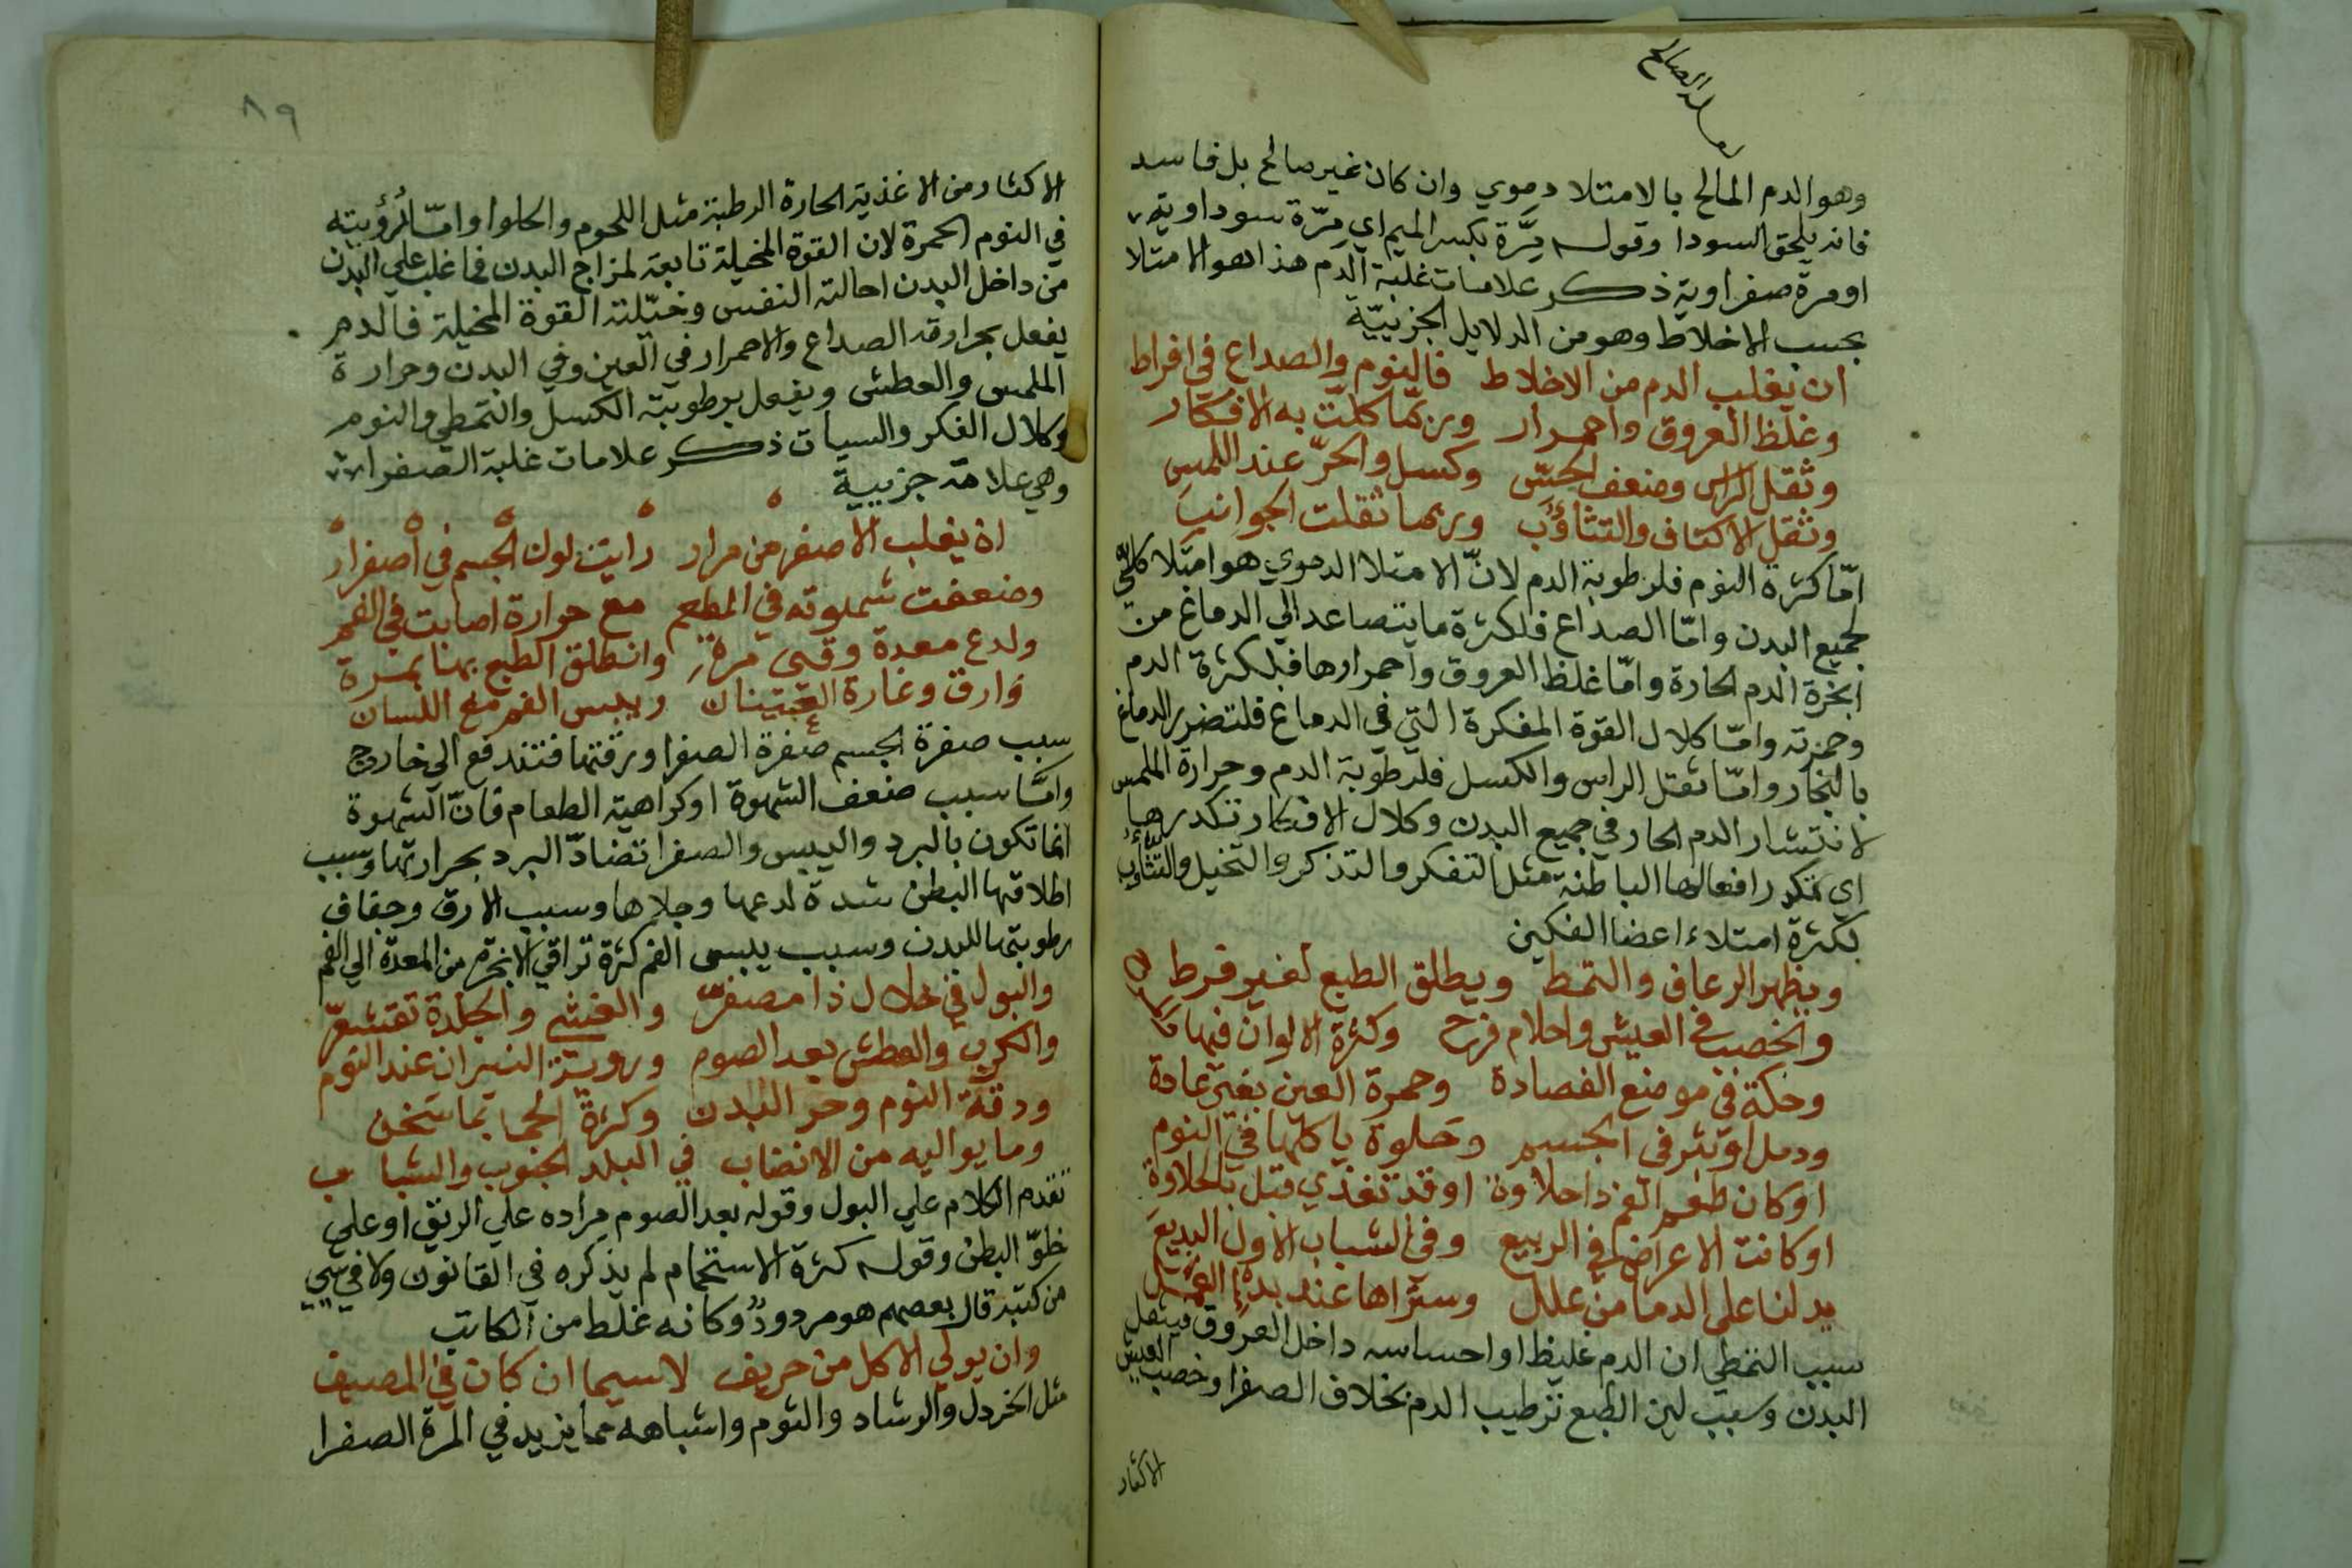 وهو الدم المالح بالامتلا دموي وان كان غير صالح بل فاسد
فانه يلحق السودا وقوله مِرَّة بكسر الميم اي مِرّة سوداوية
او مرة صفراوية ذكر علامات غلبة الدم هذا هو الامتلا
بحسب الاخلاط وهو من الدلايل الجزييّة
ان يغلب الدم من الاخلاط فالنوم والصداع في افراط
وغلظ العروق واحمرار وربّما كلّت به الافكار
وثقل الراس وضعف الحسّ وكسل والحرّ عند اللمس
وثقل الاكتاف والتثاؤب وربما ثقلت الجوانب
امّا كثرة النوم فلرطوبة الدم لانّ الامتلا الدموي هو امتلا كلّي
لجميع البدن وامّا الصداع فلكثرة ما يتصاعد الي الدماغ من
ابخرة الدم الحارة وامّا غلظ العروق واحمرارها فلكثرة الدم
وحمرته وامّا كلال القوة المفكرة التي في الدماغ فلتضرر الدماغ
بالبخار وامّا ثقل الراس والكسل فلرطوبة الدم وحرارة الملمس
لانتشار الدم الحار في جميع البدن وكلال الافكار تكدرها
اي تكدر افعالها الباطنة مثل التفكر والتذكر والتخيل والتثاؤب
لكثرة امتلاء اعضا الفكين
ويظهر الرعاف والتمط ويطلق الطبع لغير فرط
والخصب في العيش واحلام فرح وكثرة الالوان فيها
وحكة في موضع الفصادة وحمرة العين بغير عادة
ودمل او بثر في الجسم وحلوة ياكلها في النوم
او كان طعم الفم ذا حلاوة او قد تغذي قبل بالحلاوة
او كانت الاعراض في الربيع وفي الشباب الاول البديع
يدلنا على الدما من علل وستراها عند بدء العمل
سبب التمطي ان الدم غليظا او احساسه داخل العروق فيثقل
البدن وسبب لين الطبع ترطيب الدم بخلاف الصفرا وخصب العيش
الاكثار
٨٩
الاكثار من الاغذية الحارة الرطبة مثل اللحوم والحلوا وامّا لرؤيته
في النوم الحمرة لان القوة المخيلة تابعة لمزاج البدن فما غلب علي البدن
من داخل البدن احالته النفس وخيّلته القوة المخيلة فالدم
يفعل بحرارته الصداع والاحمرار في العين وفي البدن وحرارة
الملمس والعطش ويفعل برطوبته الكسل والتمطي والنوم
وكلال الفكر والسبات ذكر علامات غلبة الصفرا
وهي علامة جزيية
ان يغلب الاصفر من مرار رايت لون الجسم في اصفرار
وضعفت شهوته في المطعم مع حرارة اصابت في الفم
ولدع معدة وقيئ مرة وانطلق الطبع بهنا بمرة
وارق وغارة العينان ويبس الفم مع اللسان
سبب صفرة الجسم صفرة الصفرا ورقتها فتندفع الي خارج
وامّا سبب ضعف الشهوة او كراهية الطعام فانّ الشهوة
انما تكون بالبرد واليبس والصفرا تضادّ البرد بحرارتها وسبب
اطلاقها البطن شدة لدعها وجلاها وسبب الارق وجفاف
رطوبتها للبدن وسبب يبس الفم كثرة تراقي الابخرة من المعدة الي الفم
والبول في خلال ذا مصفرّ والغشي والجلدة تقشعرّ
والكرب والعطش بعد الصوم وروية النيران عند النوم
ودقة النوم وحر البدن وكثرة الحما بما سخن
وما يواليه من الانضاب في البلد الجنوب والشباب
تقدم الكلام علي البول وقوله بعد الصوم مراده علي الريق او علي
خلوّ البطن وقوله كثرة الاستحمام لم يذكره في القانون ولا في شيي
من كتبه قال بعضهم هو مردودٌ وكانه غلط من الكاتب
وان يولي الاكل من حريف لا سيما ان كان في المصيف
مثل الخردل والرشاد والثوم واشباهه مما يزيد في المرة الصفرا